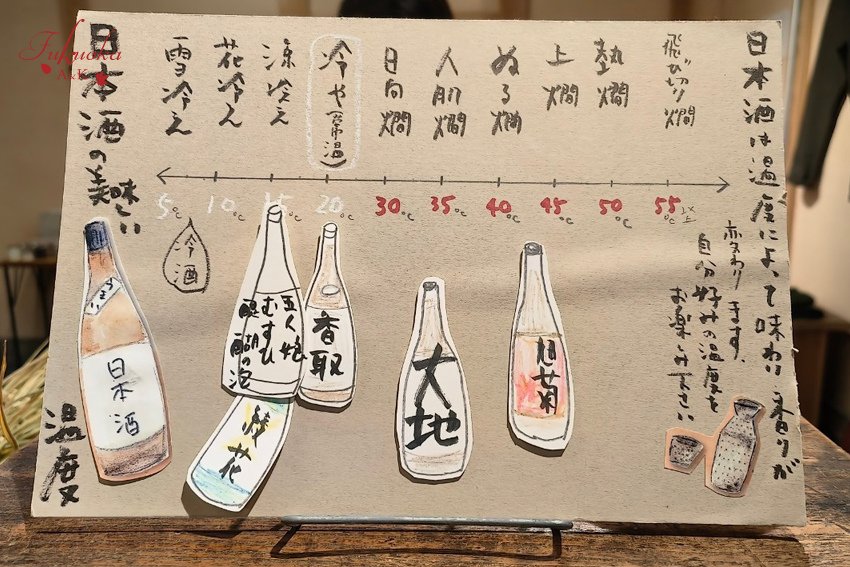 Fukuoka
日本酒の美味しい
温度
雪冷え
花冷え
涼冷え
冷や(常温)
日向燗
人肌燗
ぬる燗
上燗
熱燗
飛び切り燗
5℃
10℃
15℃
20℃
30℃
35℃
40℃
45℃
50℃
55℃以上
冷酒
日本酒
五人娘
むすひ
醍醐の泡
綾花
香取
大地
旭菊
日本酒は温度によって味わい香りが
変わります。
自分好みの温度を
お楽しみ下さい